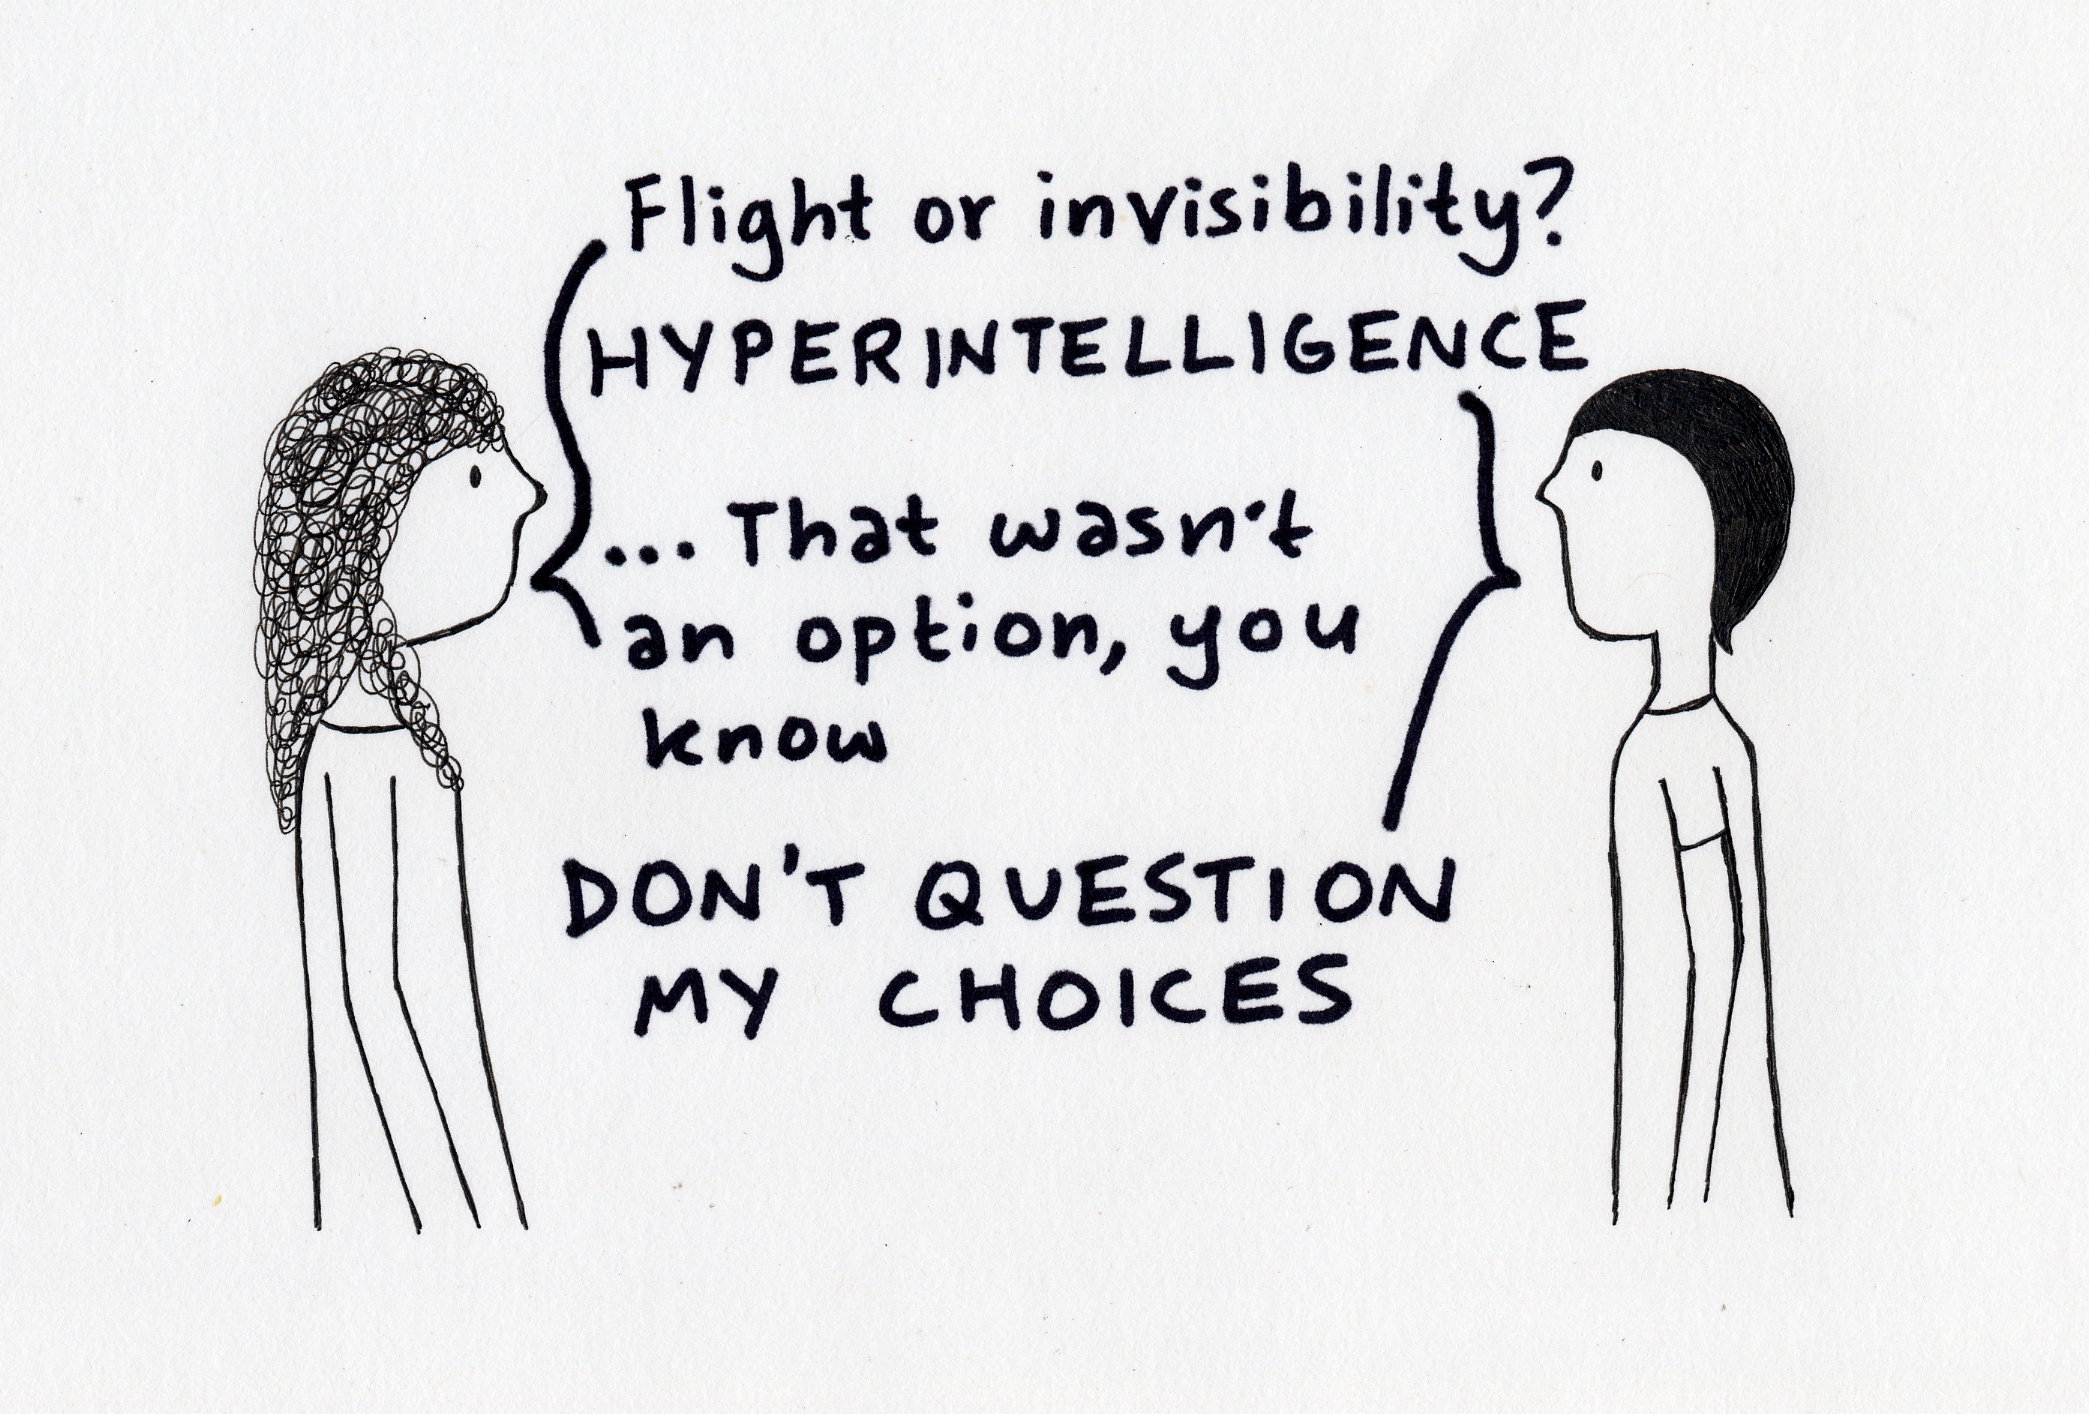 Flight or invisibility?
HYPERINTELLIGENCE
... That wasn't
an option, you
know
DON'T QUESTION
MY CHOICES